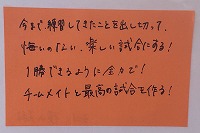 今まで練習してきたことを出し切って、
悔いのない、楽しい試合にする！
1勝できるように全力で！
チームメイトと最高の試合を作る！